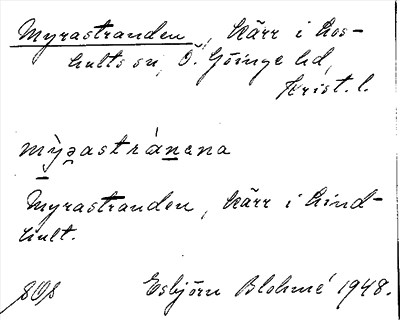 Myrastranden, kärr i Los-
hults sn, Ö. Göinge hd,
Krist. l.
mỳʒastránena
Myrastranden, kärr i Lind-
hult.
808 Esbjörn Blohmé 1948.